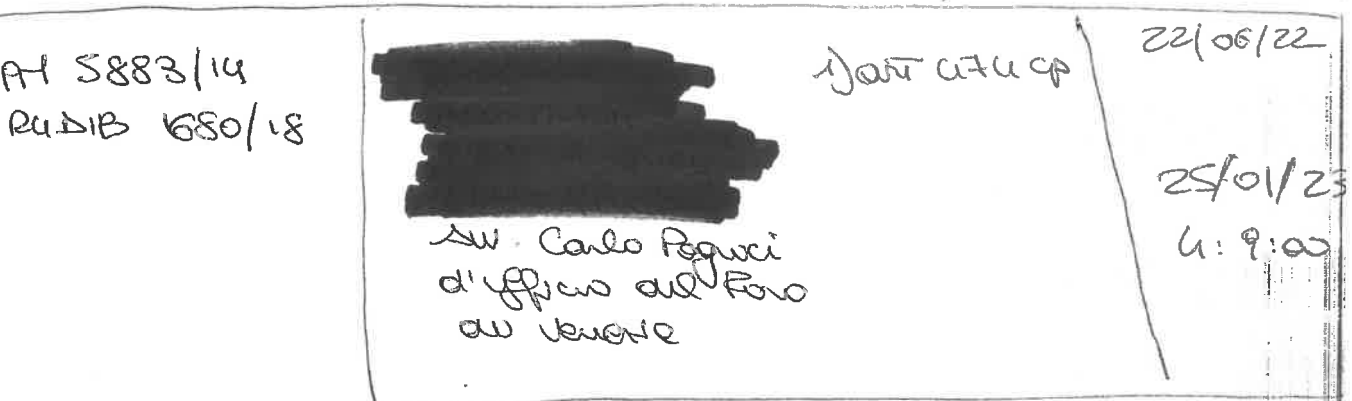 5883/14
RGDIB 1680/18
Avv. Carlo
d'ufficio del Foro
di Venezia
1) art 474 cp
22/06/22
25/01/23
h: 9:00